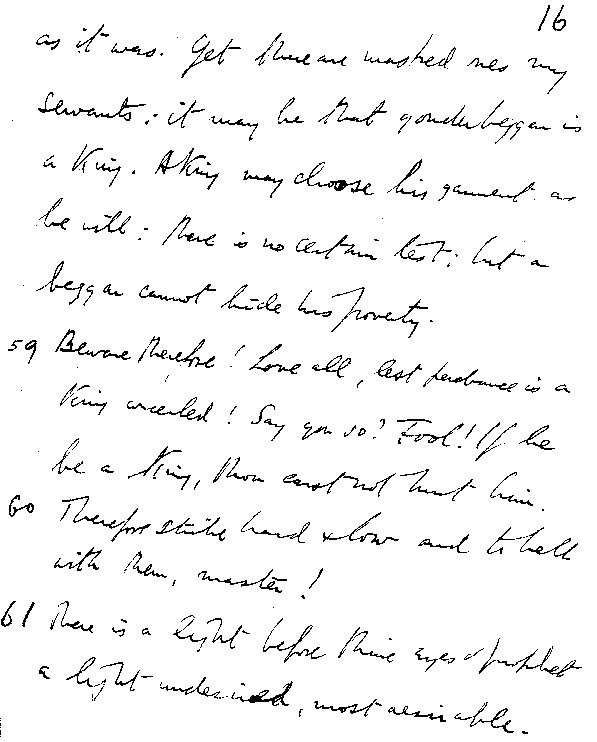 16
as it was. Yet there are masked ones my
servants: it may be that yonder beggar is
a King. A King may choose his garment as
he will: there is no certain test: but a
beggar cannot hide his poverty.
59 Beware therefore! Love all, lest perchance is a
King concealed! Say you so? Fool! If he
be a King, thou canst not hurt him.
60 Therefore strike hard & low and to hell
with them, master!
61 There is a light before thine eyes o prophet
a light undesired, most desirable.